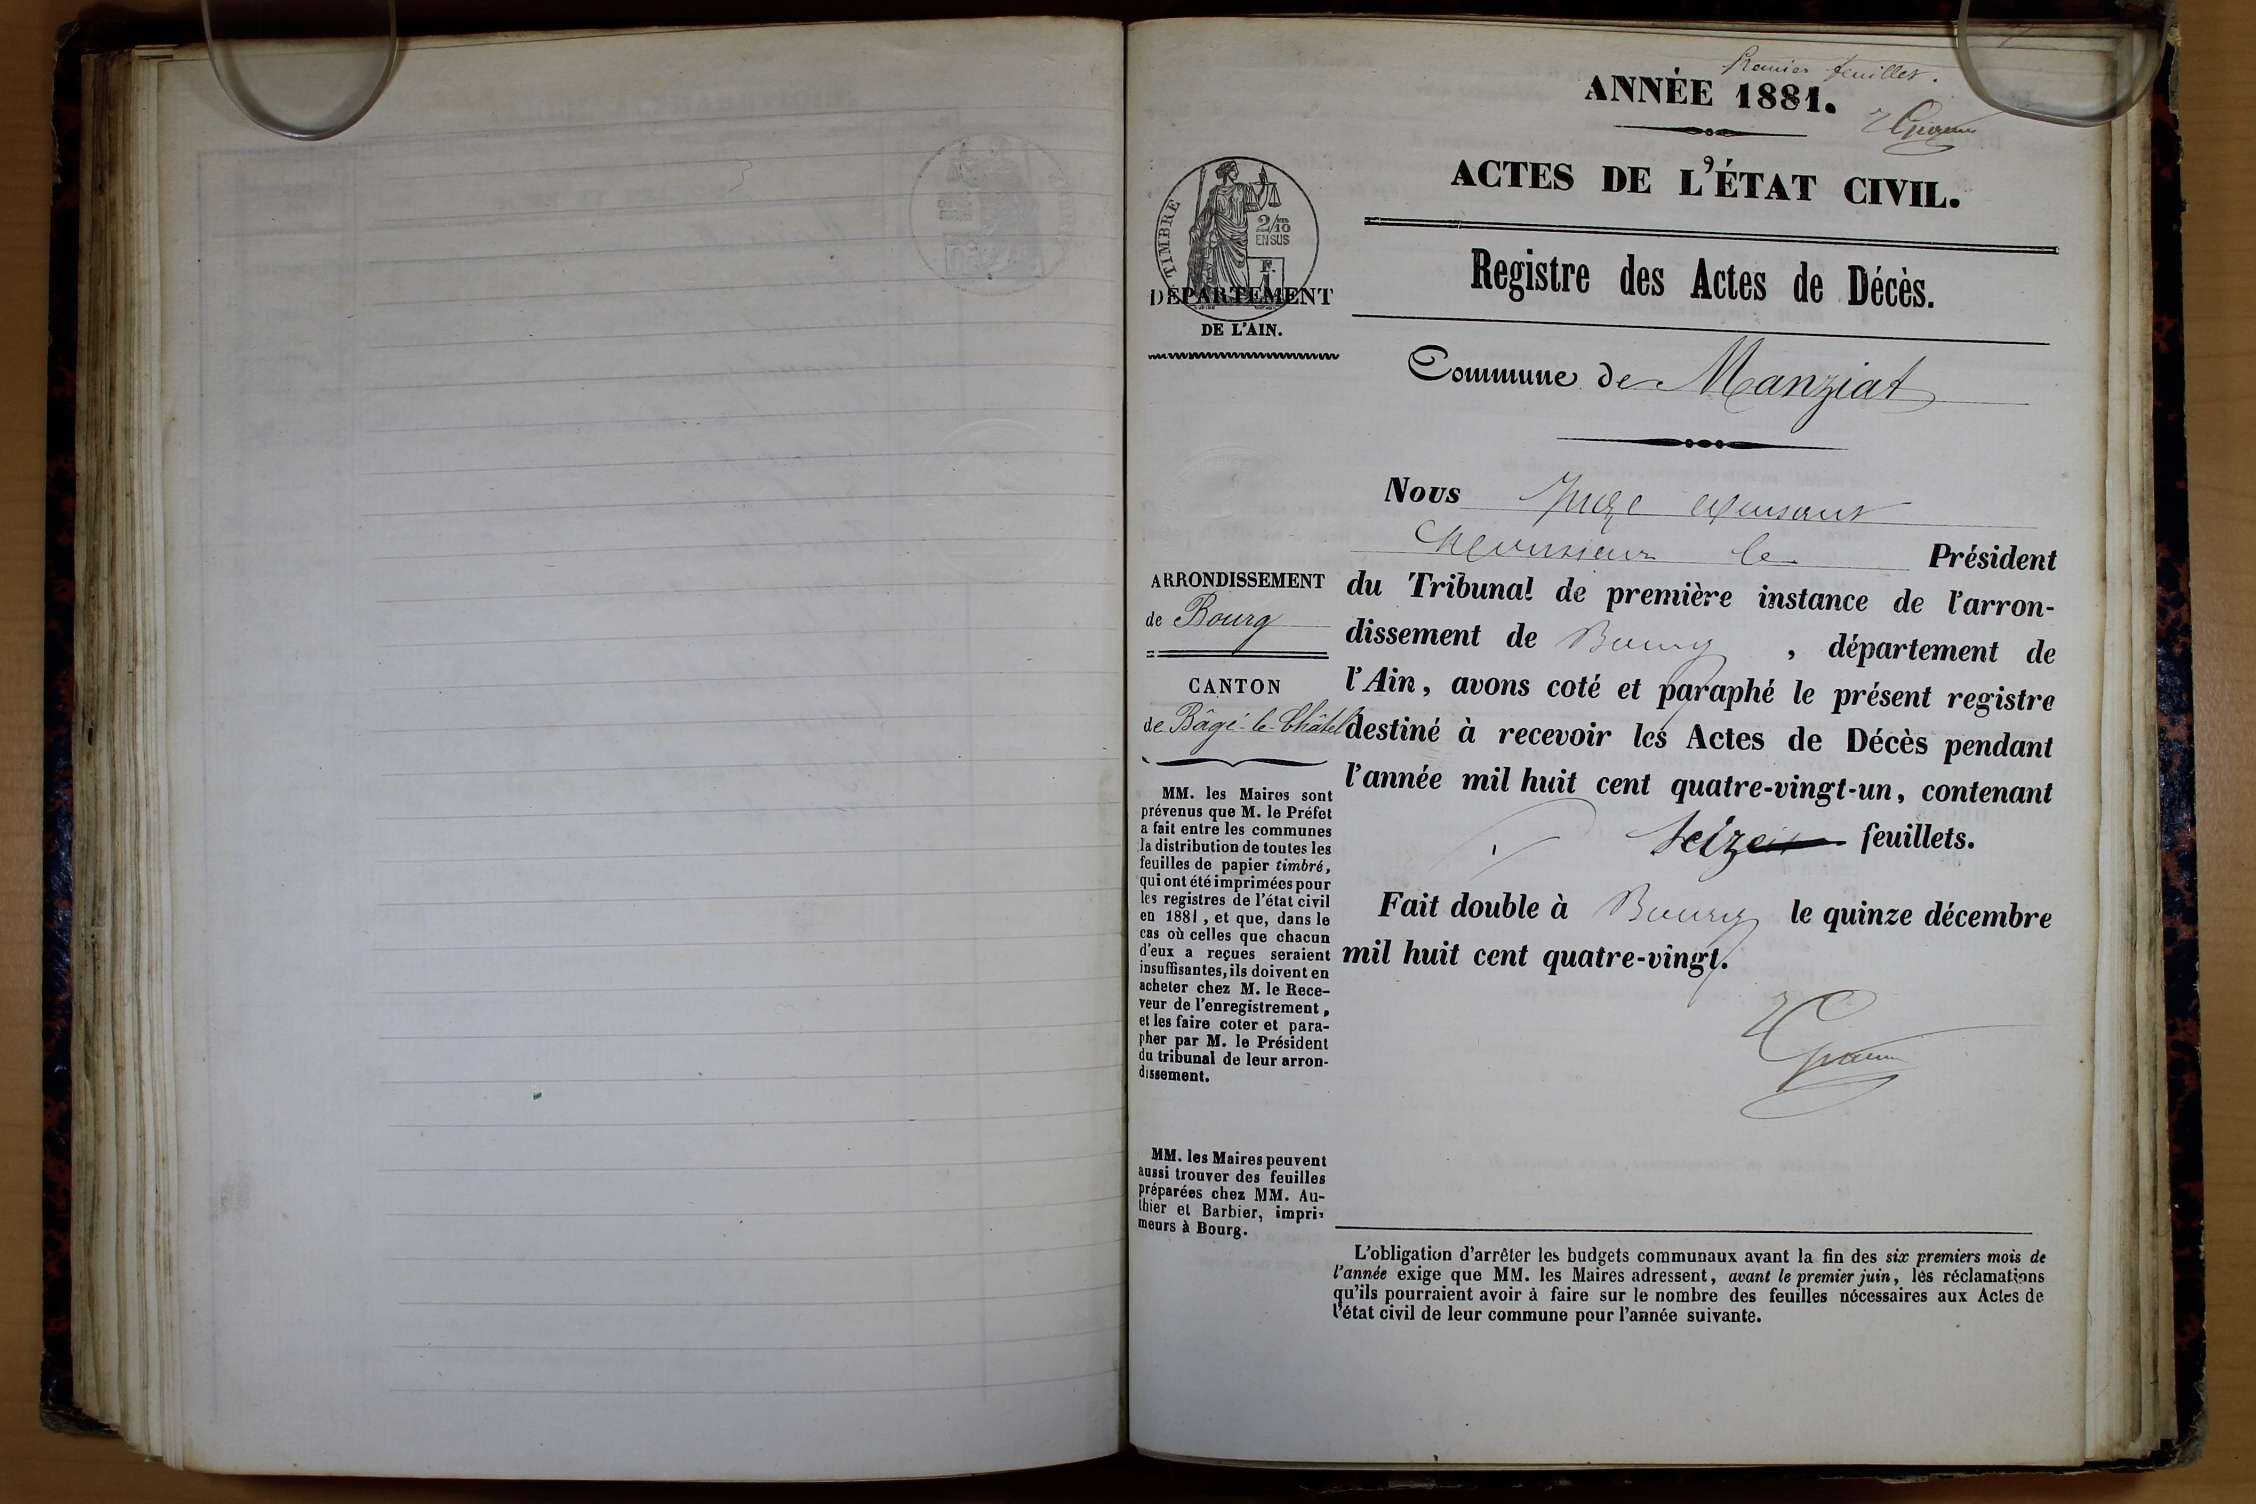 Premier feuillet.
ANNÉE 1881.
ACTES DE L'ÉTAT CIVIL.
TIMBRE
2/10
EN SUS
F.
1
DÉPARTEMENT
DE L'AIN.
Registre des Actes de Décès.
Commune de Manziat
ARRONDISSEMENT
de Bourg
CANTON
de Bâgé-le-Châtel
MM. les Maires sont
prévenus que M. le Préfet
a fait entre les communes
la distribution de toutes les
feuilles de papier timbré,
qui ont été imprimées pour
les registres de l'état civil
en 1881, et que, dans le
cas où celles que chacun
d'eux a reçues seraient
insuffisantes, ils doivent en
acheter chez M. le Rece-
veur de l'enregistrement,
et les faire coter et para-
pher par M. le Président
du tribunal de leur arron-
dissement.
MM. les Maires peuvent
aussi trouver des feuilles
préparées chez MM. Au-
thier et Barbier, impri-
meurs à Bourg.
Nous Juge
le Président
du Tribunal de première instance de l'arron-
dissement de Bourg, département de
l'Ain, avons coté et paraphé le présent registre
destiné à recevoir les Actes de Décès pendant
l'année mil huit cent quatre-vingt-un, contenant
seize feuillets.
Fait double à Bourg le quinze décembre
mil huit cent quatre-vingt.
L'obligation d'arrêter les budgets communaux avant la fin des six premiers mois de
l'année exige que MM. les Maires adressent, avant le premier juin, les réclamations
qu'ils pourraient avoir à faire sur le nombre des feuilles nécessaires aux Actes de
l'état civil de leur commune pour l'année suivante.